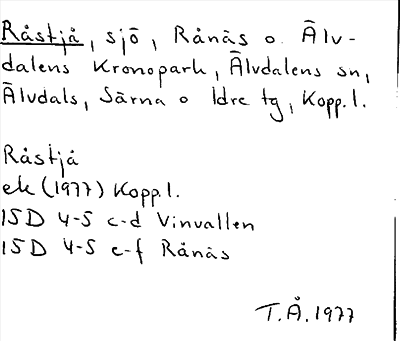 Råstjå, sjö, Rånäs o. Älv-
dalens Kronopark, Älvdalens sn,
Älvdals, Särna o Idre tg, Kopp.l.
Råstjå
ek (1977) Kopp.l.
15D 4-5 c-d Vinvallen
15D 4-5 e-f Rånäs
T.Å.1977